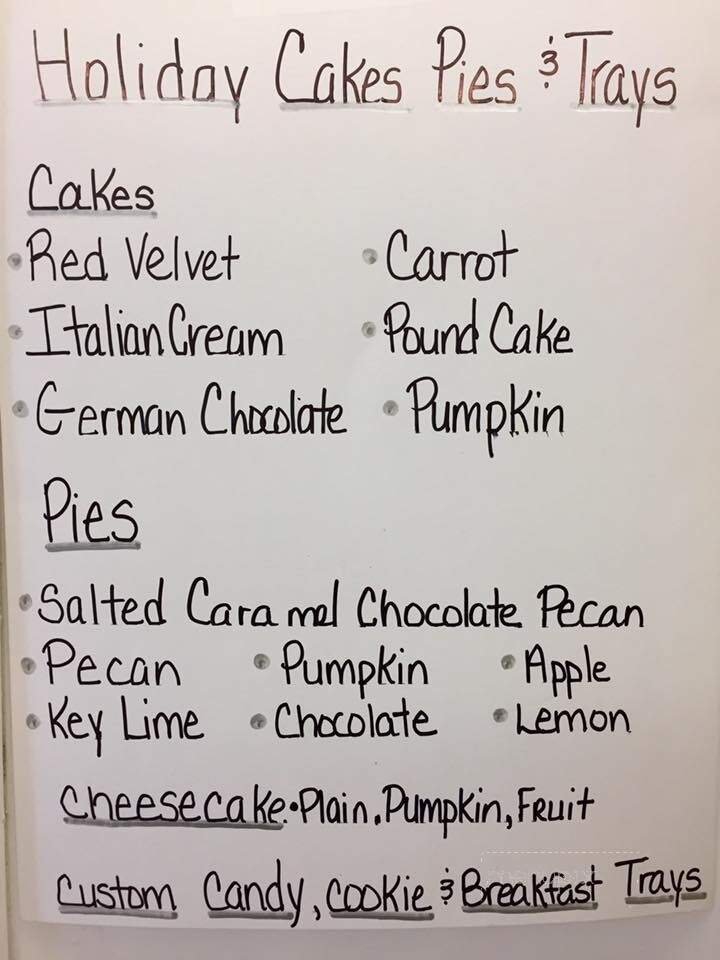 Holiday Cakes Pies & Trays
Cakes
• Red Velvet • Carrot
• Italian Cream • Pound Cake
• German Chocolate • Pumpkin
Pies
• Salted Caramel Chocolate Pecan
• Pecan • Pumpkin • Apple
• Key Lime • Chocolate • Lemon
Cheesecake • Plain, Pumpkin, Fruit
Custom Candy, Cookie & Breakfast Trays